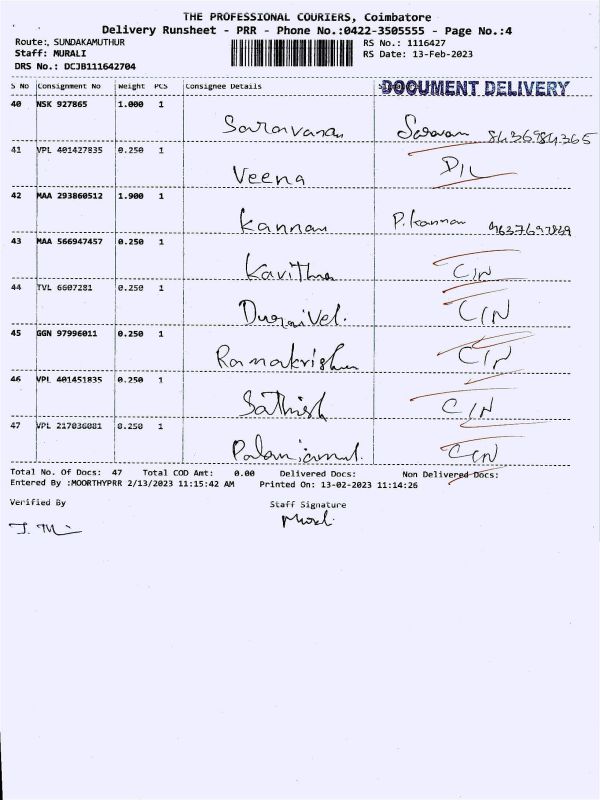 THE PROFESSIONAL COURIERS, Coimbatore
Delivery Runsheet - PRR - Phone No.:0422-3505555 - Page No.:4
Route:, SUNDAKAMUTHUR RS No.: 1116427
Staff: MURALI RS Date: 13-Feb-2023
DRS No.: DCJB111642704
S No Consignment No Weight PCS Consignee Details DOCUMENT DELIVERY
40 NSK 927865 1.000 1
Saravanan Saravan 8436984365
41 VPL 401427835 0.250 1
Veena D/L
42 MAA 293860512 1.900 1
Kannan P. Kannan
43 MAA 566947457 0.250 1
Kavitha C/N
44 TVL 6607281 0.250 1
Duraivel. C/N
45 GGN 97996011 0.250 1
Ramakrishn C/N
46 VPL 401451835 0.250 1
Sathish C/N
47 VPL 217036081 0.250 1
C/N
Total No. Of Docs: 47 Total COD Amt: 0.00 Delivered Docs: Non Delivered Docs:
Entered By :MOORTHYPRR 2/13/2023 11:15:42 AM Printed On: 13-02-2023 11:14:26
Verified By Staff Signature